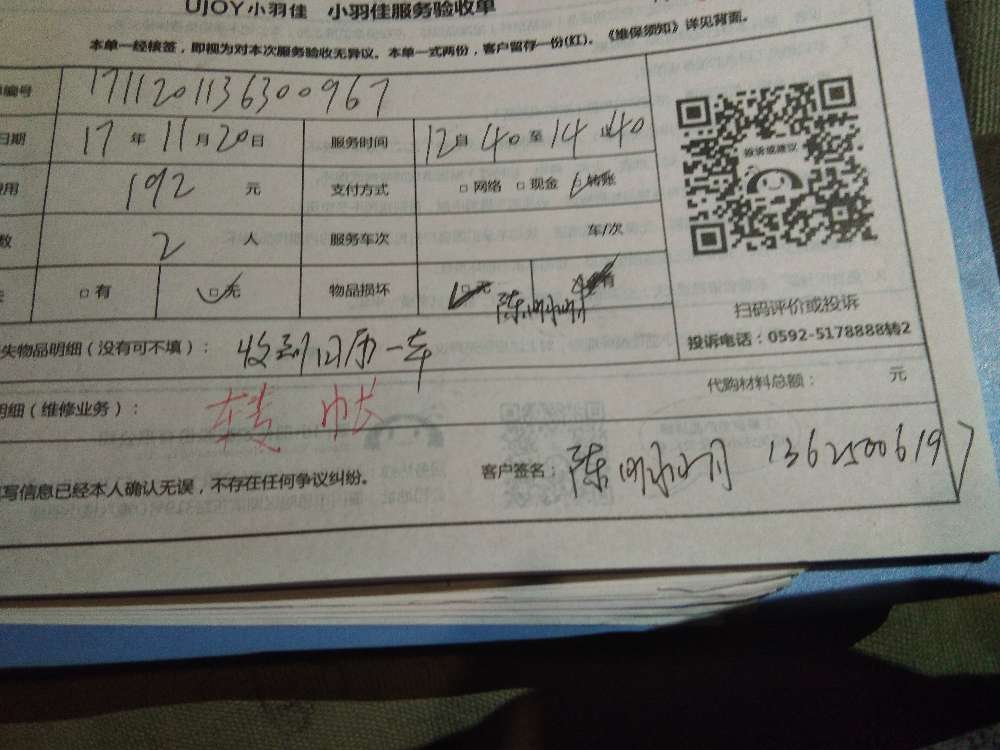 UJOY小羽佳 小羽佳服务验收单
本单一经核签，即视为对本次服务验收无异议。本单一式两份，客户留存一份(红)。《维保须知》详见背面。
编号 1711201136300967
日期 17 年 11 月 20 日 服务时间 12 自 40 至 14 止 40
用 192 元 支付方式 □ 网络 □ 现金 □ 转账
数 2 人 服务车次 车/次
□ 有 □ 无 物品损坏 □ 无 有
投诉或建议
扫码评价或投诉
投诉电话：0592-5178888转2
失物品明细（没有可不填）： 收到日历一本
代购材料总额： 元
明细（维修业务）： 转帐
写信息已经本人确认无误，不存在任何争议纠纷。 客户签名： 陈 13625006197